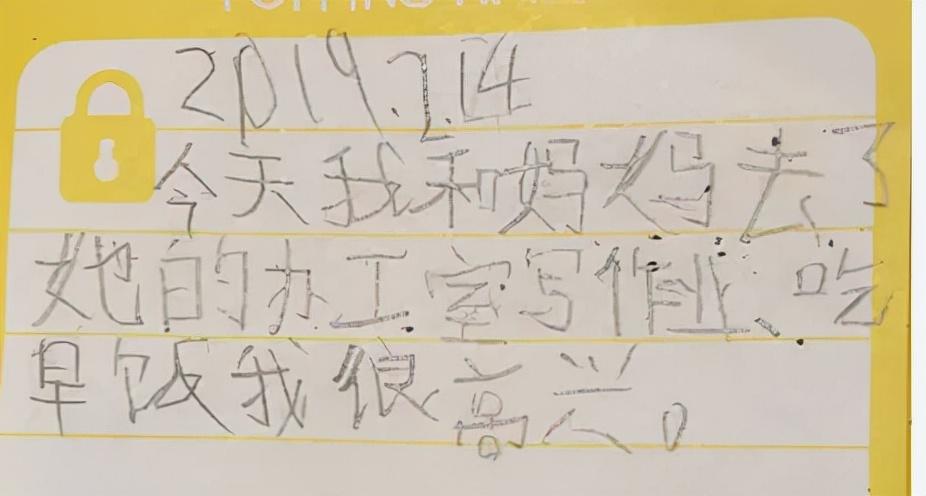 2019.2.14
今天我和妈妈去了
她的办工室写作业、吃
早饭我很高兴。